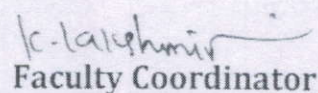 K. Lakshmi
Faculty Coordinator